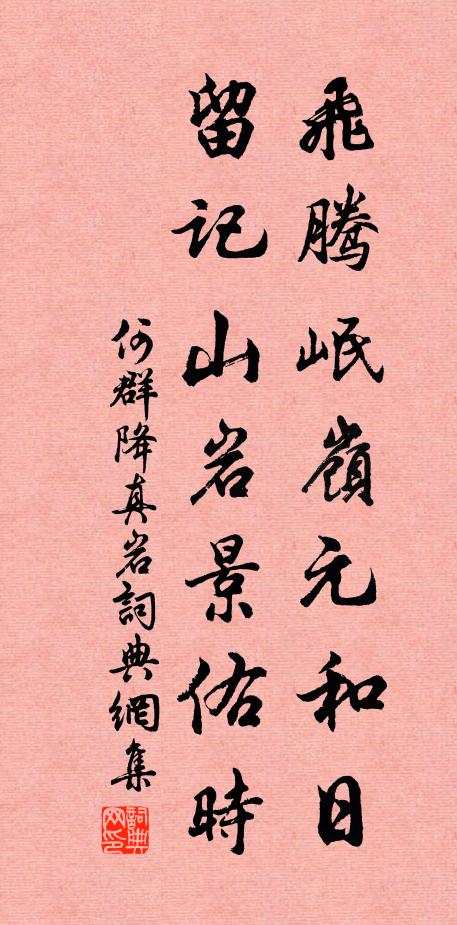 飛騰岷嶺元和日
留記山岩景佑時
何群降真岩詞典網集
詞典网印